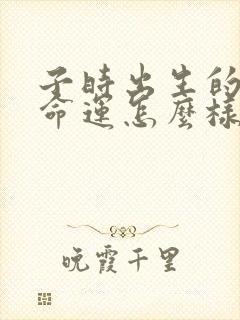 子時出生的
命運怎麼樣
晚霞千里